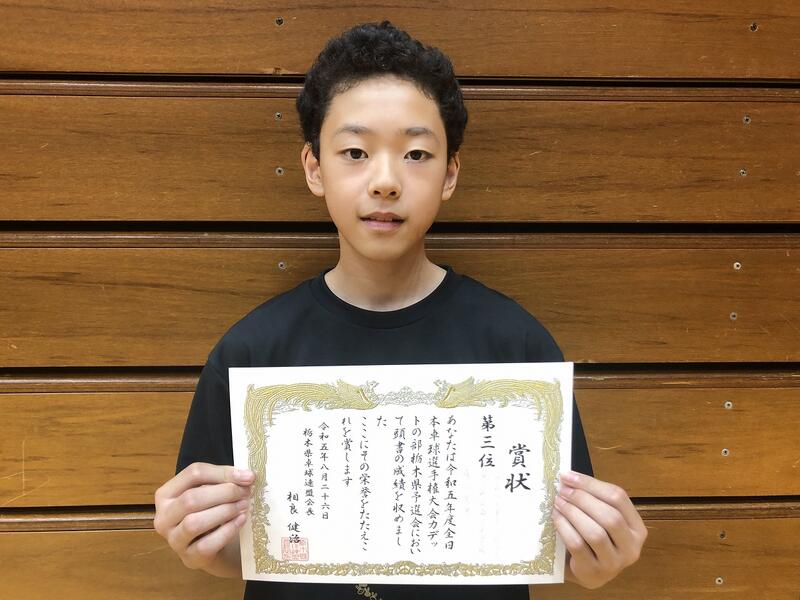 賞状
第三位
あなたは令和五年度全日
本卓球選手権大会カデッ
トの部栃木県予選会におい
て頭書の成績を収めまし
た
ここにその栄誉をたたえこ
れを賞します
令和五年八月二十六日
栃木県卓球連盟会長
相良 健治